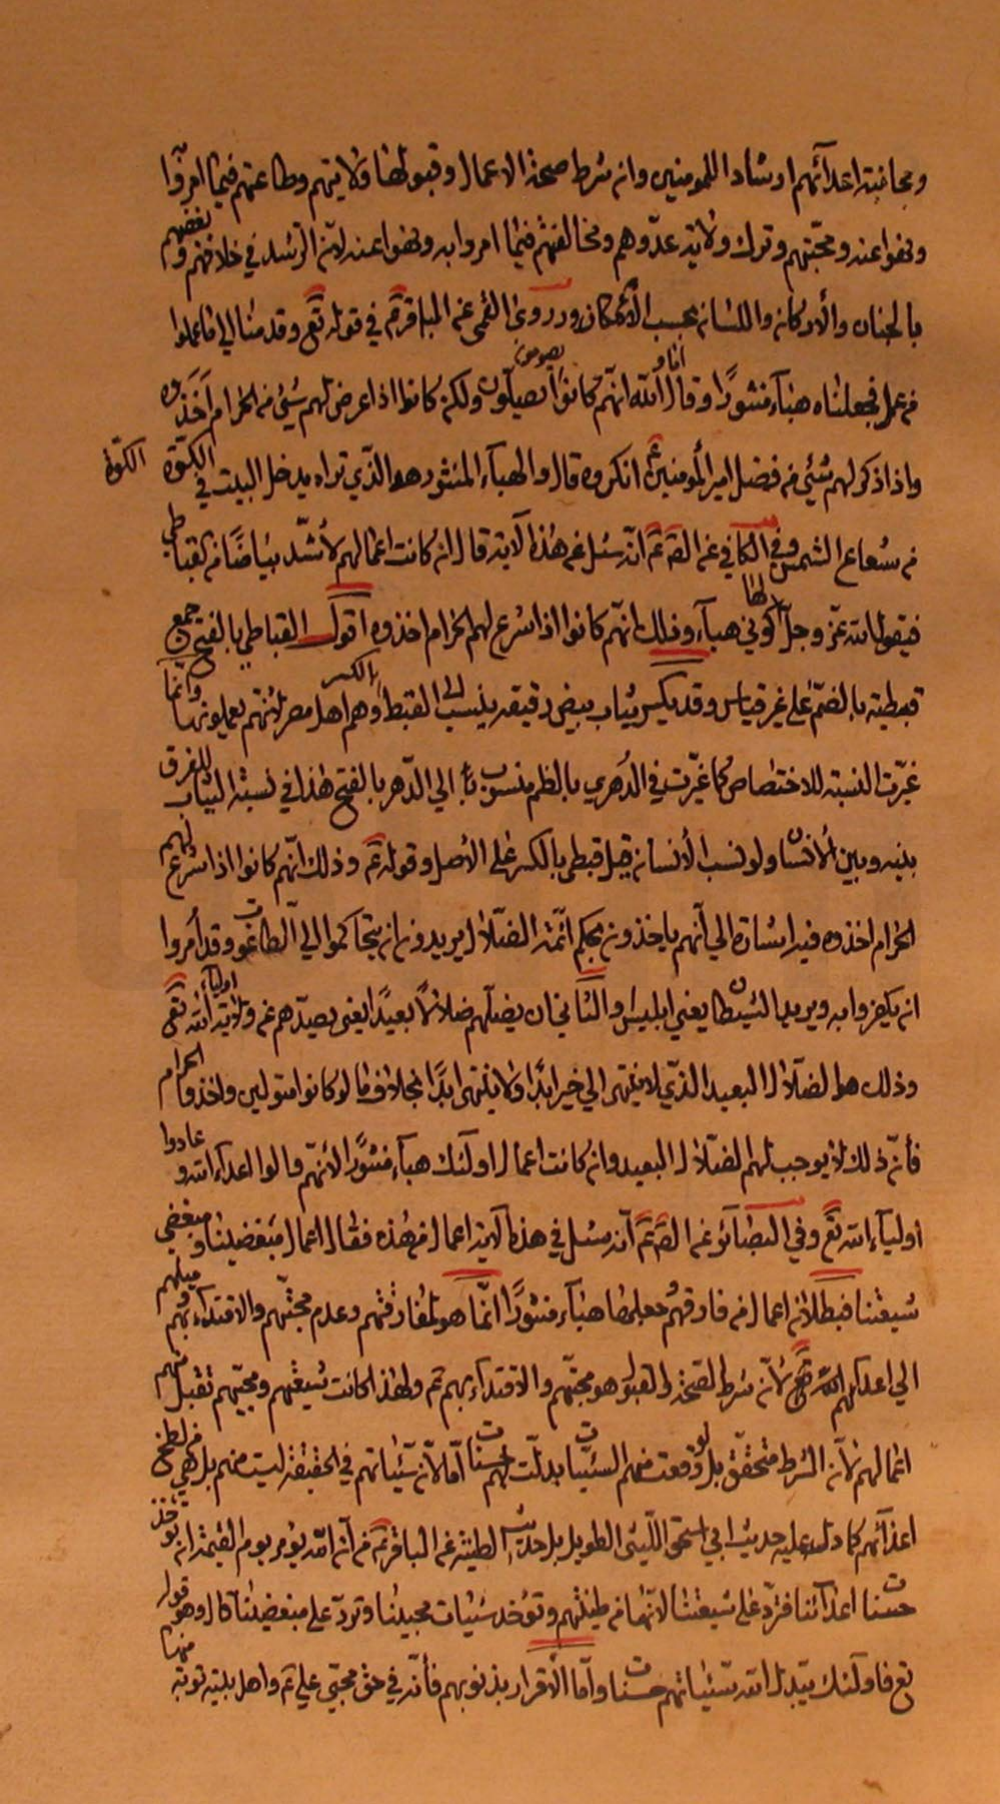 ومجانبة اعدآئهم ارشادا للمومنين وان شرط صحة الاعمال وقبولها ولايتهم وطاعتهم فيما امروا
ونهوا عنه ومحبتهم وترك ولاية عدوهم ومخالفتهم فيما امروا به ونهوا عنه لان الرشد في خلافهم وبغضهم
بالجنان والأركان واللسان بحسب الامكان وروى القمى عن الباقر ع في قوله تع وقدمنا الى ما عملوا
من عمل فجعلناه هبآء منثورًا قال اما والله انهم كانوا يصومون ويصلون ولكن كانوا اذا عرض لهم شئ من الحرام اخذوه
واذا ذكر لهم شئي من فضل امير المؤمنين ع انكروه قال والهبآء المنثور هو الذي تراه يدخل البيت في الكوّة الكوّة
من شعاع الشمس وفي الكافي عن الصّ ع انه سئل عن هذه الآية قال ان كانت اعمالهم لأشدّ بياضًا من القباطي
فيقول الله عزّ وجلّ لها كوني هبآء وذلك انهم كانوا اذا شرع لهم الحرام اخذوه اقول القباطي بالفتح جمع
قبطية بالضمّ على غير قياس وقد يكسر ثياب بيض رقيقة ينسب الى القبط بالكسر وهم اهل مصر لأنهم يعملونها وانما
غيّرت النسبة للاختصاص كما غيّرت في الدُهري بالظم منسوب الى الدّهر بالفتح هذا في نسبة الثياب للفرق
بينه وبين الأنسان ولو نسب الأنسان قيل قبطى بالكسر على الأصل وقوله ع وذلك انّهم كانوا اذا شرع لهم
الحرام اخذوه فيه اشارة الى انهم ياخذون بحكم ائمّة الضلال يريدون ان يتحاكموا الى الطاغوت وقد أمروا
ان يكفروا به ويريد الشيطان يعني ابليس والثاني ان يضلّهم ضلالًا بعيدًا يعني يصدّهم عن ولاية اوليآء الله تع
وذلك هو الضلال البعيد الذي لا ينتهى الى خير ابدًا ولا ينتهى ابدًا بخلاف ما لو كانوا متولين واخذوا الحرام
فأنّ ذلك لا يوجب لهم الضلال البعيد وان كانت اعمال اولئك هبآء منثورًا لأنهم والوا اعدآء الله وعادوا
اوليآء الله تع وفي البصائر عن الصّ ع انه سئل في هذه الآية اعمال من هذه فقال اعمال مبغضينا ومبغضي
شيعتنا فبطلان اعمال من فارقهم وجعلها هبآء منثورًا انّما هو لمفارقتهم وعدم محبّتهم والاقتدآء بهم وميلهم
الى اعدآئهم لأن شرط الصحّة والقبول هو محبّتهم والاقتدآء بهم ع ولهذا كانت شيعتهم ومحبّيهم تقبل منهم
اعمالهم لأنّ الشرط متحقّق بل لو وقعت منهم السيئات بدلت لهم حسنات امّا لأنّ سيّئاتهم في الحقيقة ليست منهم بل هي من لطخ
اعدآئهم كما دلّ عليه حديث ابي اسحق اللّيثى الطويل بل حديث الطينة عن الباقر ع من ان الله يؤمر يوم القيمة ان تؤخذ
حسنات اعدآئنا فتردّ على شيعتنا لأنّها من طينتهم وتؤخذ سيئات محبينا وتردّ على مبغضينا قال وهو قول
تع فاولئك يبدل الله سيئاتهم حسنات وامّا الأقرار بذنوبهم فأنّه في حقّ محبّي علي ع واهل بيته توبة منها